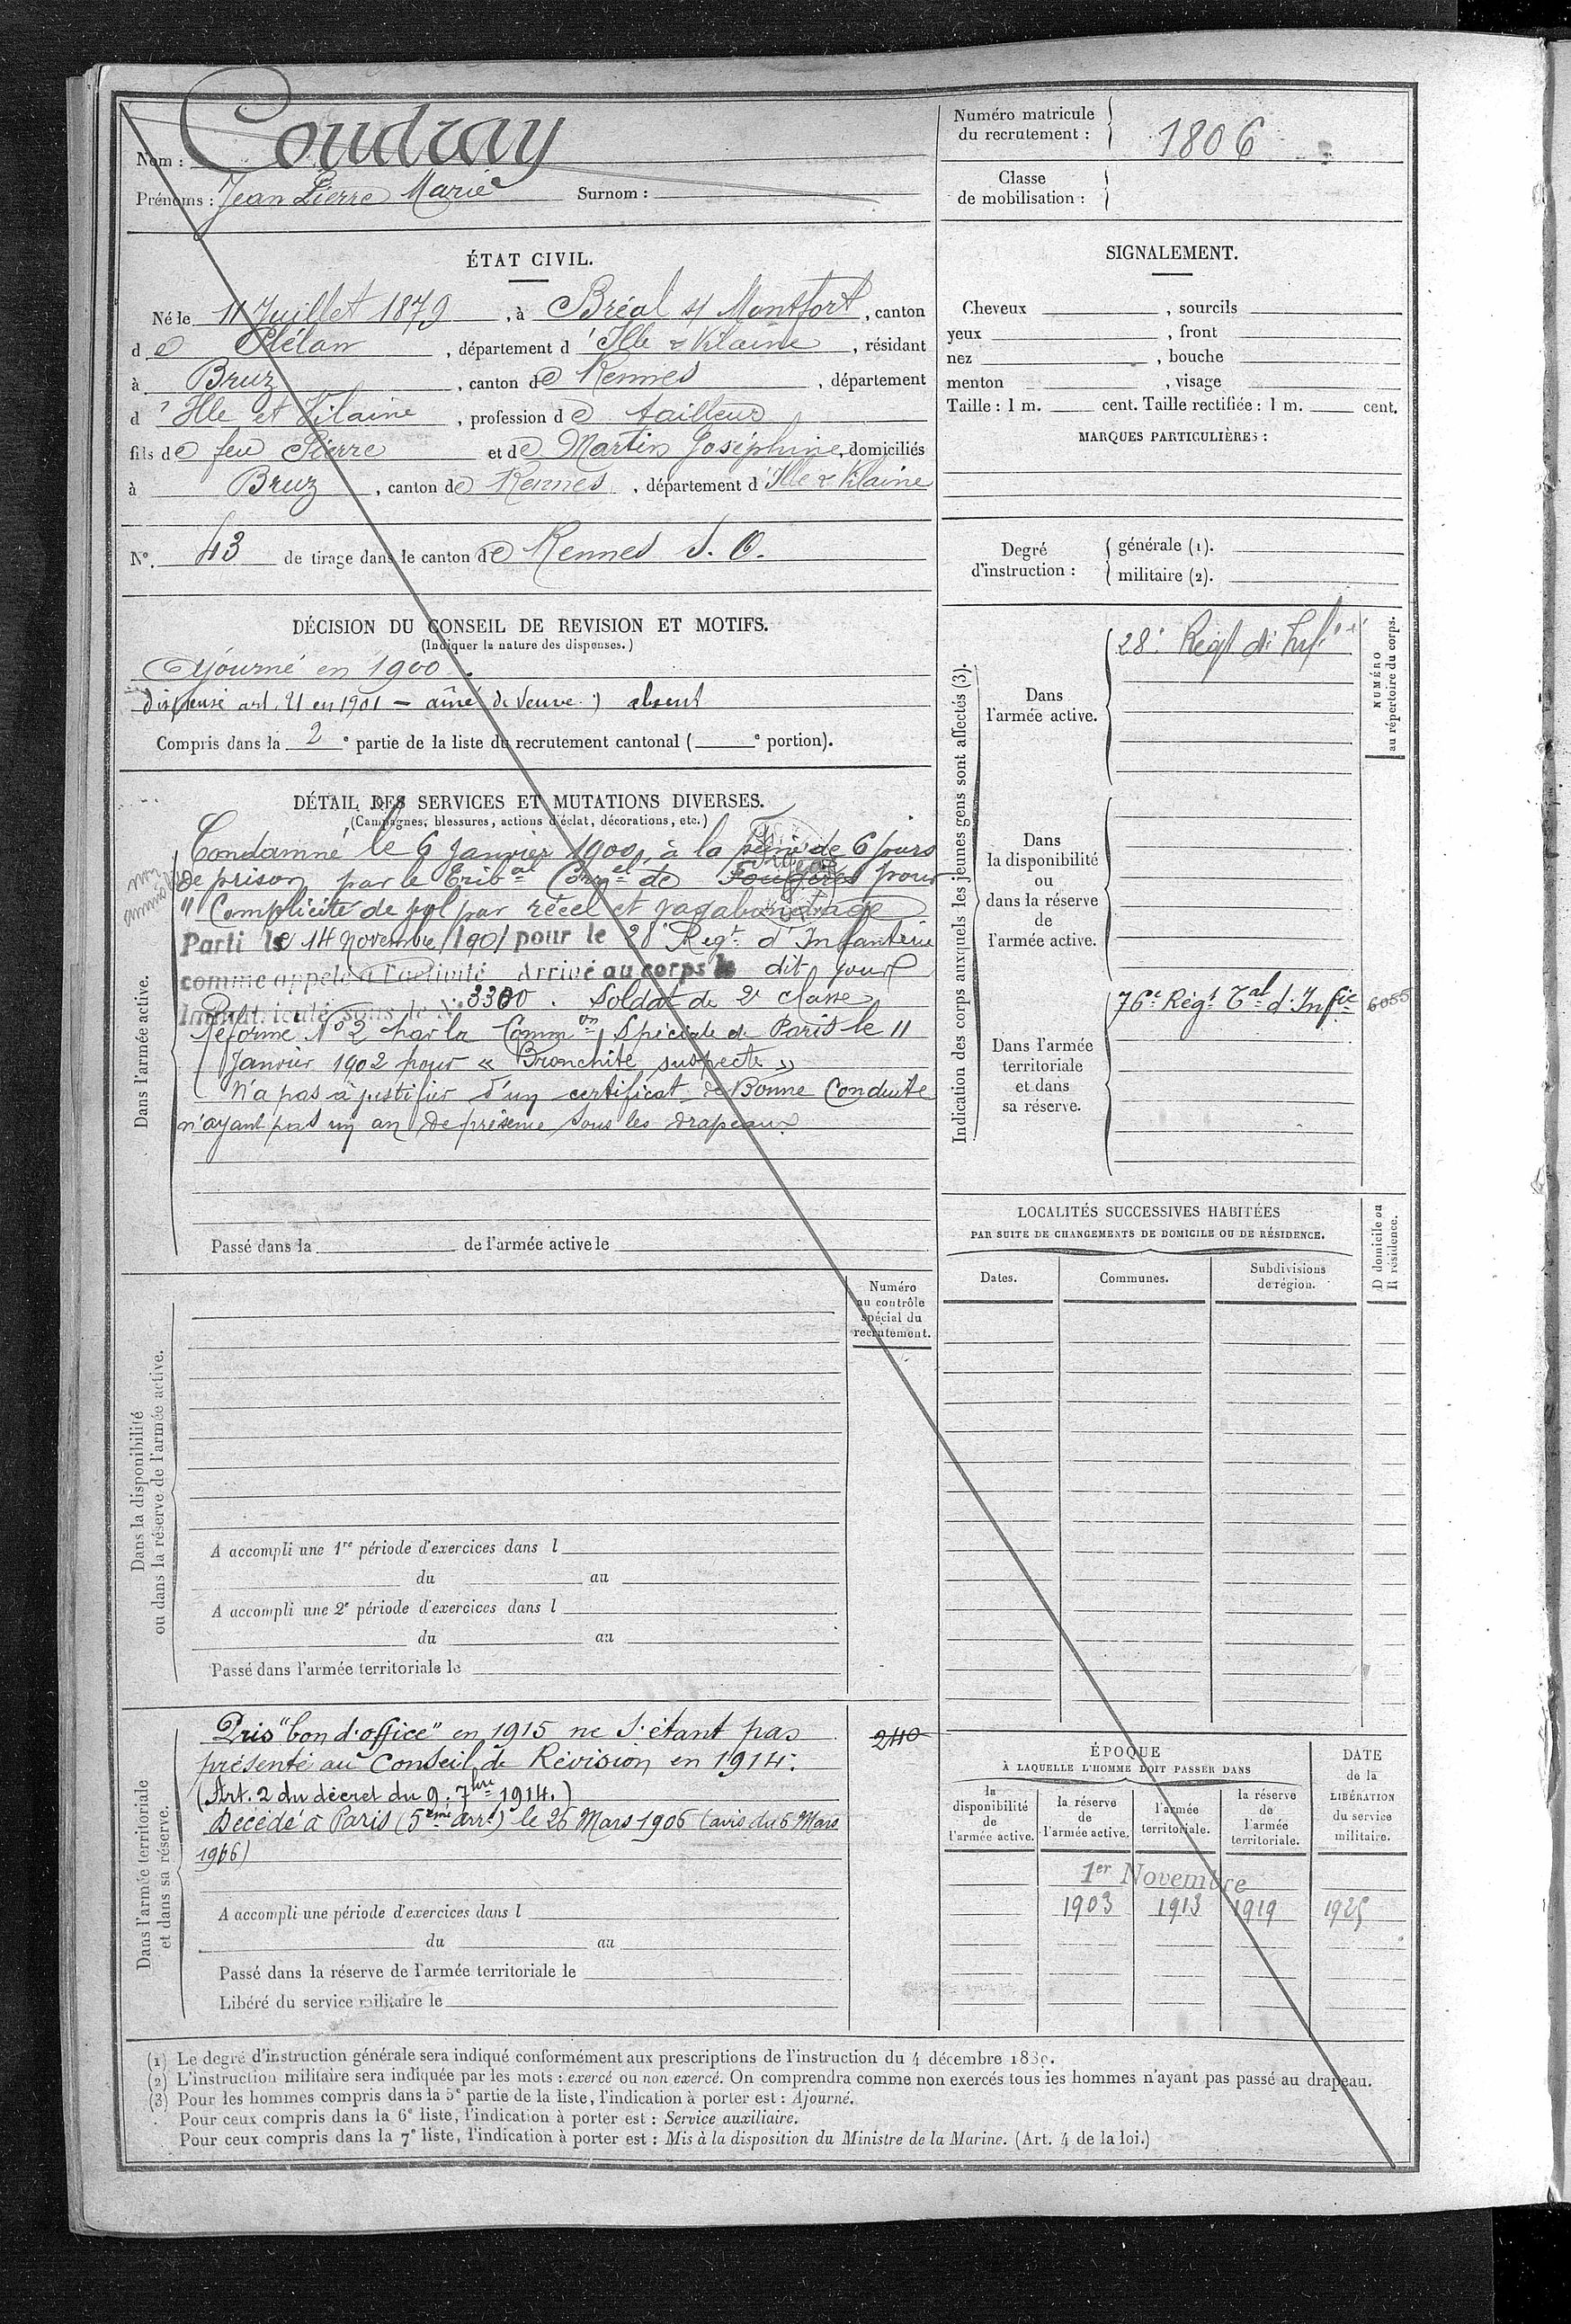 Nom : Coudray
Prénoms : Jean Pierre Marie Surnom :
Numéro matricule
du recrutement : 1806
Classe
de mobilisation :
ÉTAT CIVIL.
Né le 11 Juillet 1879, à Bréal s/ Montfort, canton
de Plélan, département d'Ille & Vilaine, résidant
à Bruz, canton de Rennes, département
d'Ille et Vilaine, profession de tailleur
fils de feu Pierre et de Martin Joséphine, domiciliés
à Bruz, canton de Rennes, département d'Ille & Vilaine
N°. 43 de tirage dans le canton de Rennes S. O.
SIGNALEMENT.
Cheveux , sourcils
yeux , front
nez , bouche
menton , visage
Taille : 1 m. cent. Taille rectifiée : 1 m. cent.
MARQUES PARTICULIÈRES :
Degré
d'instruction :
générale (1).
militaire (2).
DÉCISION DU CONSEIL DE REVISION ET MOTIFS.
(Indiquer la nature des dispenses.)
Ajourné en 1900.
dispensé art. 21 en 1901 - aîné de veuve :) absent
Compris dans la 2e partie de la liste du recrutement cantonal ( e portion).
DÉTAIL DES SERVICES ET MUTATIONS DIVERSES.
(Campagnes, blessures, actions d'éclat, décorations, etc.)
Dans l'armée active.
non
Condamné le 6 Janvier 1900, à la peine de 6 jours
de prison par le Tribal Correl de Fougères pour
"Complicité de vol par recel et vagabondage
Parti le 14 Novembre 1901 pour le 28e Regt d'Infanterie
comme appelé à l'activité Arrivé au corps le dit jour
Immatriculé sous le N° 3300. Soldat de 2e classe
Réformé N° 2 par la Common Spéciale de Paris le 11
Janvier 1902 pour « Bronchite suspecte »
N'a pas à justifier d'un certificat de Bonne Conduite
n'ayant pas un an de présence sous les drapeaux
Passé dans la de l'armée active le
Indication des corps auxquels les jeunes gens sont affectés (3).
NUMÉRO
au répertoire du corps.
Dans
l'armée active.
28e Regt d'Infie
Dans
la disponibilité
ou
dans la réserve
de
l'armée active.
Dans l'armée
territoriale
et dans
sa réserve.
76e Régt Tal d'Infie 6055
LOCALITÉS SUCCESSIVES HABITÉES
PAR SUITE DE CHANGEMENTS DE DOMICILE OU DE RÉSIDENCE.
Dates. Communes. Subdivisions
de région.
D domicile ou
R résidence.
Dans la disponibilité
ou dans la réserve de l'armée active.
Numéro
au contrôle
spécial du
recrutement.
A accompli une 1re période d'exercices dans l
du au
A accompli une 2e période d'exercices dans l
du au
Passé dans l'armée territoriale le
Dans l'armée territoriale
et dans sa réserve.
Pris "bon d'office" en 1915 ne s'étant pas
présenté au Conseil de Révision en 1914.
(Art. 2 du décret du 9. 7bre 1914.)
Décédé à Paris (5ème arrt) le 26 Mars 1906 (avis du 6 Mars
1966)
240
A accompli une période d'exercices dans l
du au
Passé dans la réserve de l'armée territoriale le
Libéré du service militaire le
ÉPOQUE
À LAQUELLE L'HOMME DOIT PASSER DANS
la
disponibilité
de
l'armée active.
la réserve
de
l'armée active.
l'armée
territoriale.
la réserve
de
l'armée
territoriale.
DATE
de la
LIBÉRATION
du service
militaire.
1er Novembre
1903 1913 1919 1925
(1) Le degré d'instruction générale sera indiqué conformément aux prescriptions de l'instruction du 4 décembre 1889.
(2) L'instruction militaire sera indiquée par les mots : exercé ou non exercé. On comprendra comme non exercés tous les hommes n'ayant pas passé au drapeau.
(3) Pour les hommes compris dans la 5e partie de la liste, l'indication à porter est : Ajourné.
Pour ceux compris dans la 6e liste, l'indication à porter est : Service auxiliaire.
Pour ceux compris dans la 7e liste, l'indication à porter est : Mis à la disposition du Ministre de la Marine. (Art. 4 de la loi.)